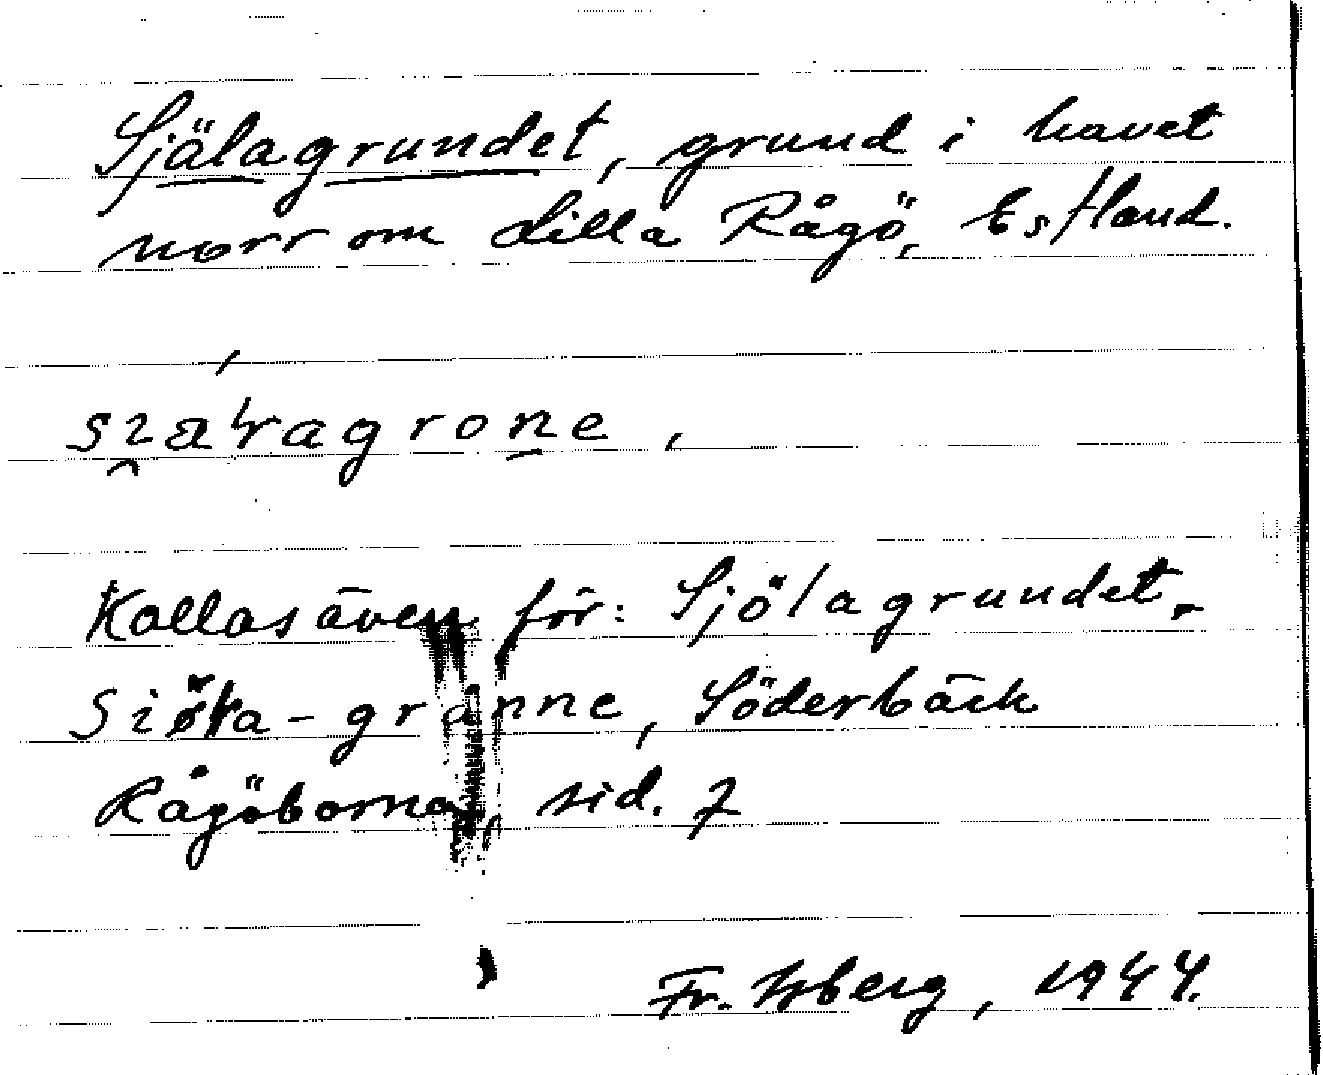 Själagrundet, grund i havet
norr om Lilla Rågö, Estland.
Kallas även för: Sjölagrundet.
grånne, Söderbäck
Rågöborna, sid. 7
Fr. Isberg, 1944.